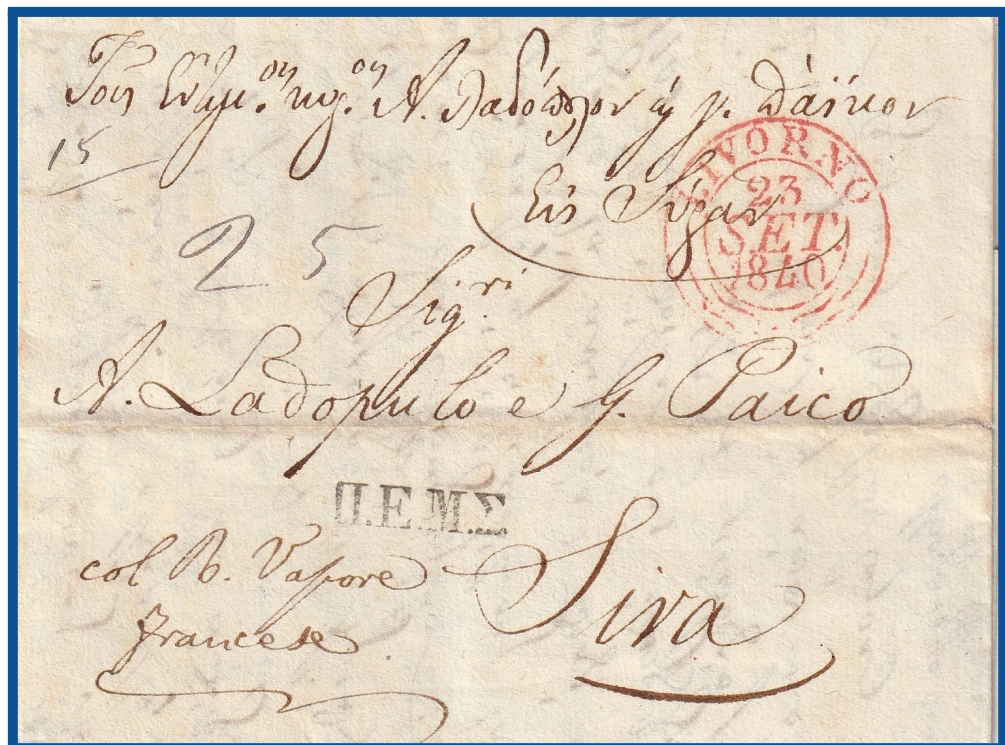 Τους Ευγμ.ους κυρ.ους Α. Λαδόπουλον & Γ. Πάϊκον
15
Εις Σύραν
LIVORNO
23
SET.
1840
25
Sig.ri
A. Ladopulo e G. Paico
Π.Ε.Μ.Σ
col B. Vapore
Francese
Sira